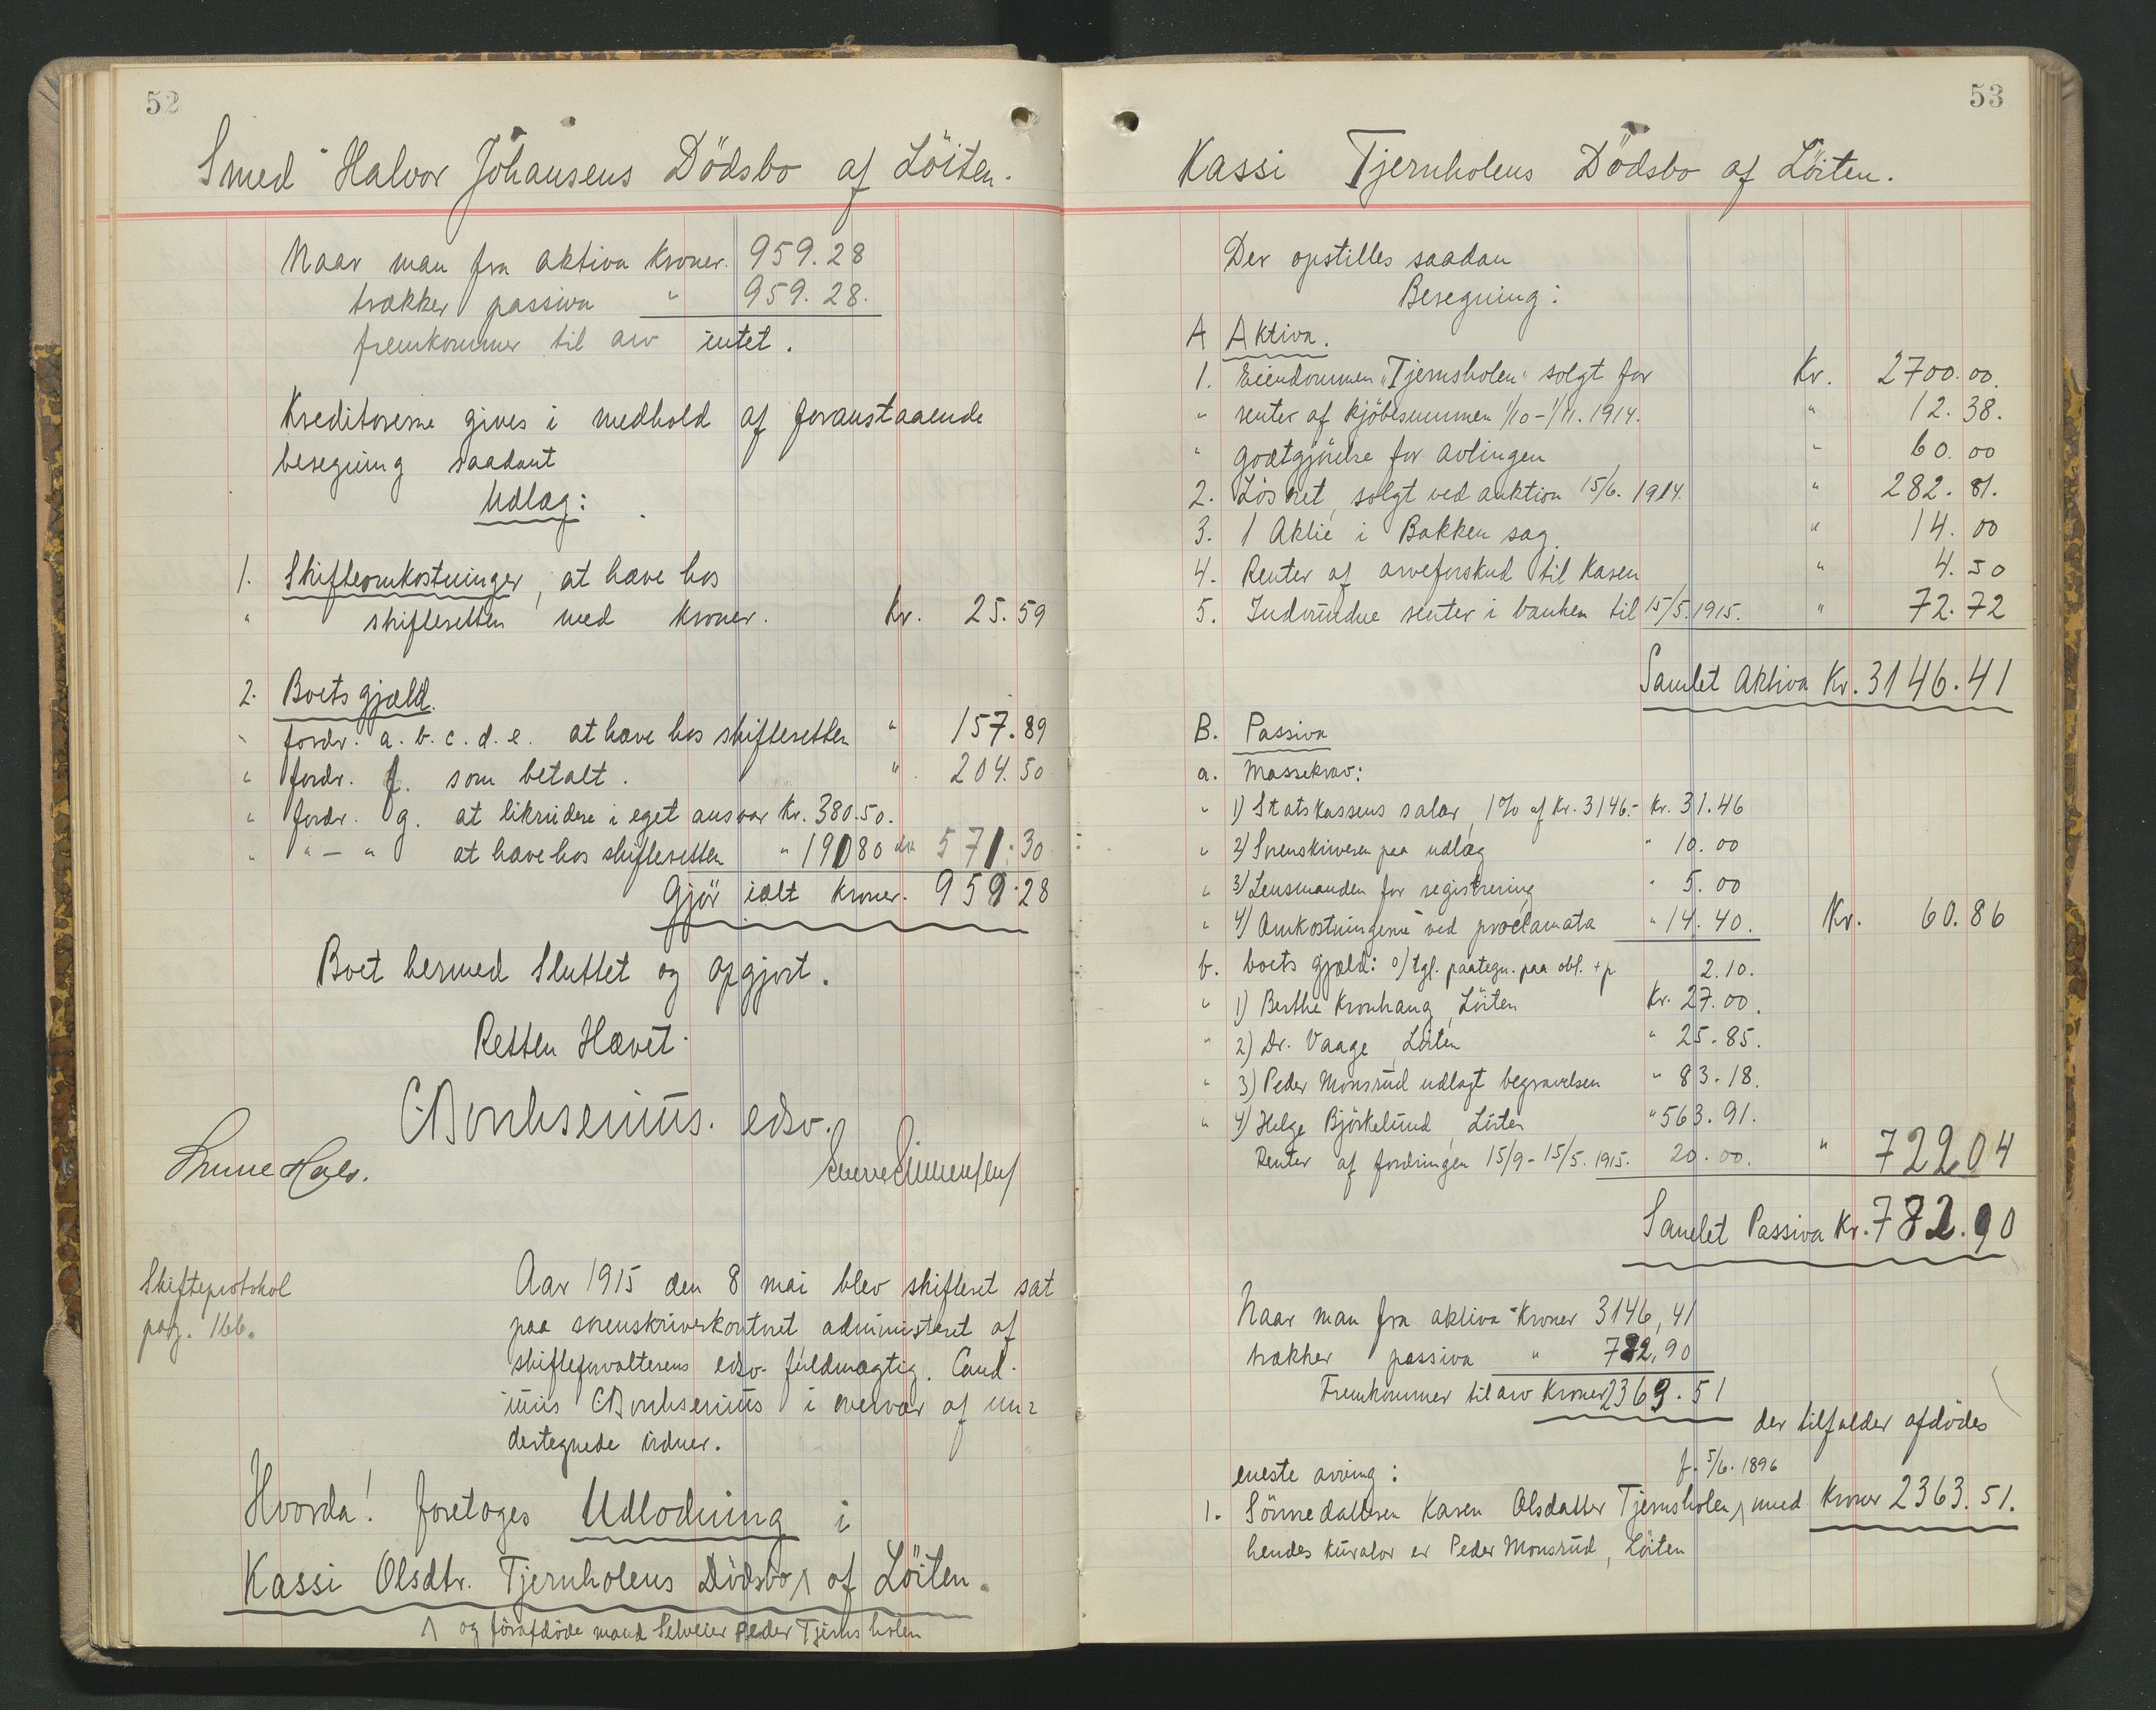 52
Smed Halvor Johansens Dödsbo af Löiten.
Naar man fra aktiva Kroner. 959.28
trækker passiva " 959.28.
fremkommer til arv intet.
Kreditorerne gives i medhold af foranstaaende
beregning saadant
Udlæg:
1. Skifteomkostninger, at hæve hos
" skifteretten med kroner. Kr. 25.59
2. Boets gjæld.
" fordr. a. b. c. d. e. at hæve hos skifteretten " 157.89
" fordr. f. som betalt. " 204.50
" fordr. g. at likvidere i eget ansvar Kr. 380.50.
" " — " at hæve hos skifteretten " 190 80 571.30
Gjør ialt kroner. 959.28
Boet hermed Sluttet og opgjort.
Retten Hævet.
edsv.
Skifteprotokol
pag. 166.
Aar 1915 den 8 mai blev skifteret sat
paa sorenskriverkontoret administreret af
skifteforvalterens edsv. fuldmægtig. Cand.
juris i overvær af un=
dertegnede vidner.
Hvorda! foretoges Udlodning i
Kassi Olsdtr. Tjernholens Dödsbo ^ af Löiten.
^ og förafdöde mand Selveier Peder Tjernsholen
53
Kassi Tjernholens Dödsbo af Löiten.
Der opstilles saadan
Beregning:
A Aktiva.
1. Eiendommen "Tjernsholen" solgt for Kr. 2700.00.
" renter af kjöbesummen 1/10 - 1/11. 1914. " 12.38.
" godtgjörelse for avlingen " 60.00
2. Lösöret, solgt ved auktion 15/6. 1914. " 282.81.
3. 1 Aktie i Bakken sag. " 14.00
4. Renter af arveforskud til Karen " 4.50
5. Indvundne renter i banken til 15/5. 1915. " 72.72
Samlet Aktiva Kr. 3146.41
B. Passiva
a. Massekrav:
" 1) Statskassens salær, 1% af Kr. 3146.- Kr. 31.46
" 2) Sorenskriveren paa udlæg " 10.00
" 3) Lensmanden for registrering " 5.00
" 4) Omkostningerne ved proclamata " 14.40. Kr. 60.86
b. boets gjæld: 0) tgl. paategn. paa obl. + p. 2.10.
" 1) Berthe Kronhaug, Löiten Kr. 27.00.
" 2) Dr. Vaage, Löiten " 25.85.
" 3) Peder Monsrud udlagt begravelsen " 83.18.
" 4) Helge Björkelund, Löiten " 563.91.
Renter af fordringen 15/9 - 15/5. 1915. 20.00. " 722 04
Samlet Passiva Kr. 782.90
Naar man fra aktiva Kroner 3146,41
trækker passiva " 782,90
Fremkommer til arv Kroner 2363.51
der tilfalder afdödes
eneste arving: f. 5/6. 1896
1. Sönnedatteren Karen Olsdatter Tjernsholen, ^ med Kroner 2363.51.
hendes kurator er Peder Monsrud, Löiten